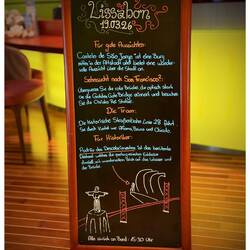 Lissabon
19.03.26
Für gute Aussichten:
Castelo de São Jorge ist eine Burg
mitten in der Altstadt und bietet eine wunder-
volle Aussicht über die Stadt an.
Sehnsucht nach San Francisco?:
Überqueren Sie die rote Brücke, die optisch stark
an die Golden Gate Bridge erinnert und besuchen
Sie die Christo Rei Statue.
Die Tram:
Die historische Straßenbahn Linie 28 fährt
Sie durch Viertel wie Alfama, Baixa und Chiado.
Für Historiker:
Padrão dos Descobrimentos ist das berühmte
Denkmal, welches die portugiesischen Entdecker
und mit wundervollem Blick auf das Wasser und
die Brücke.
Alle zurück an Bord: 15:30 Uhr